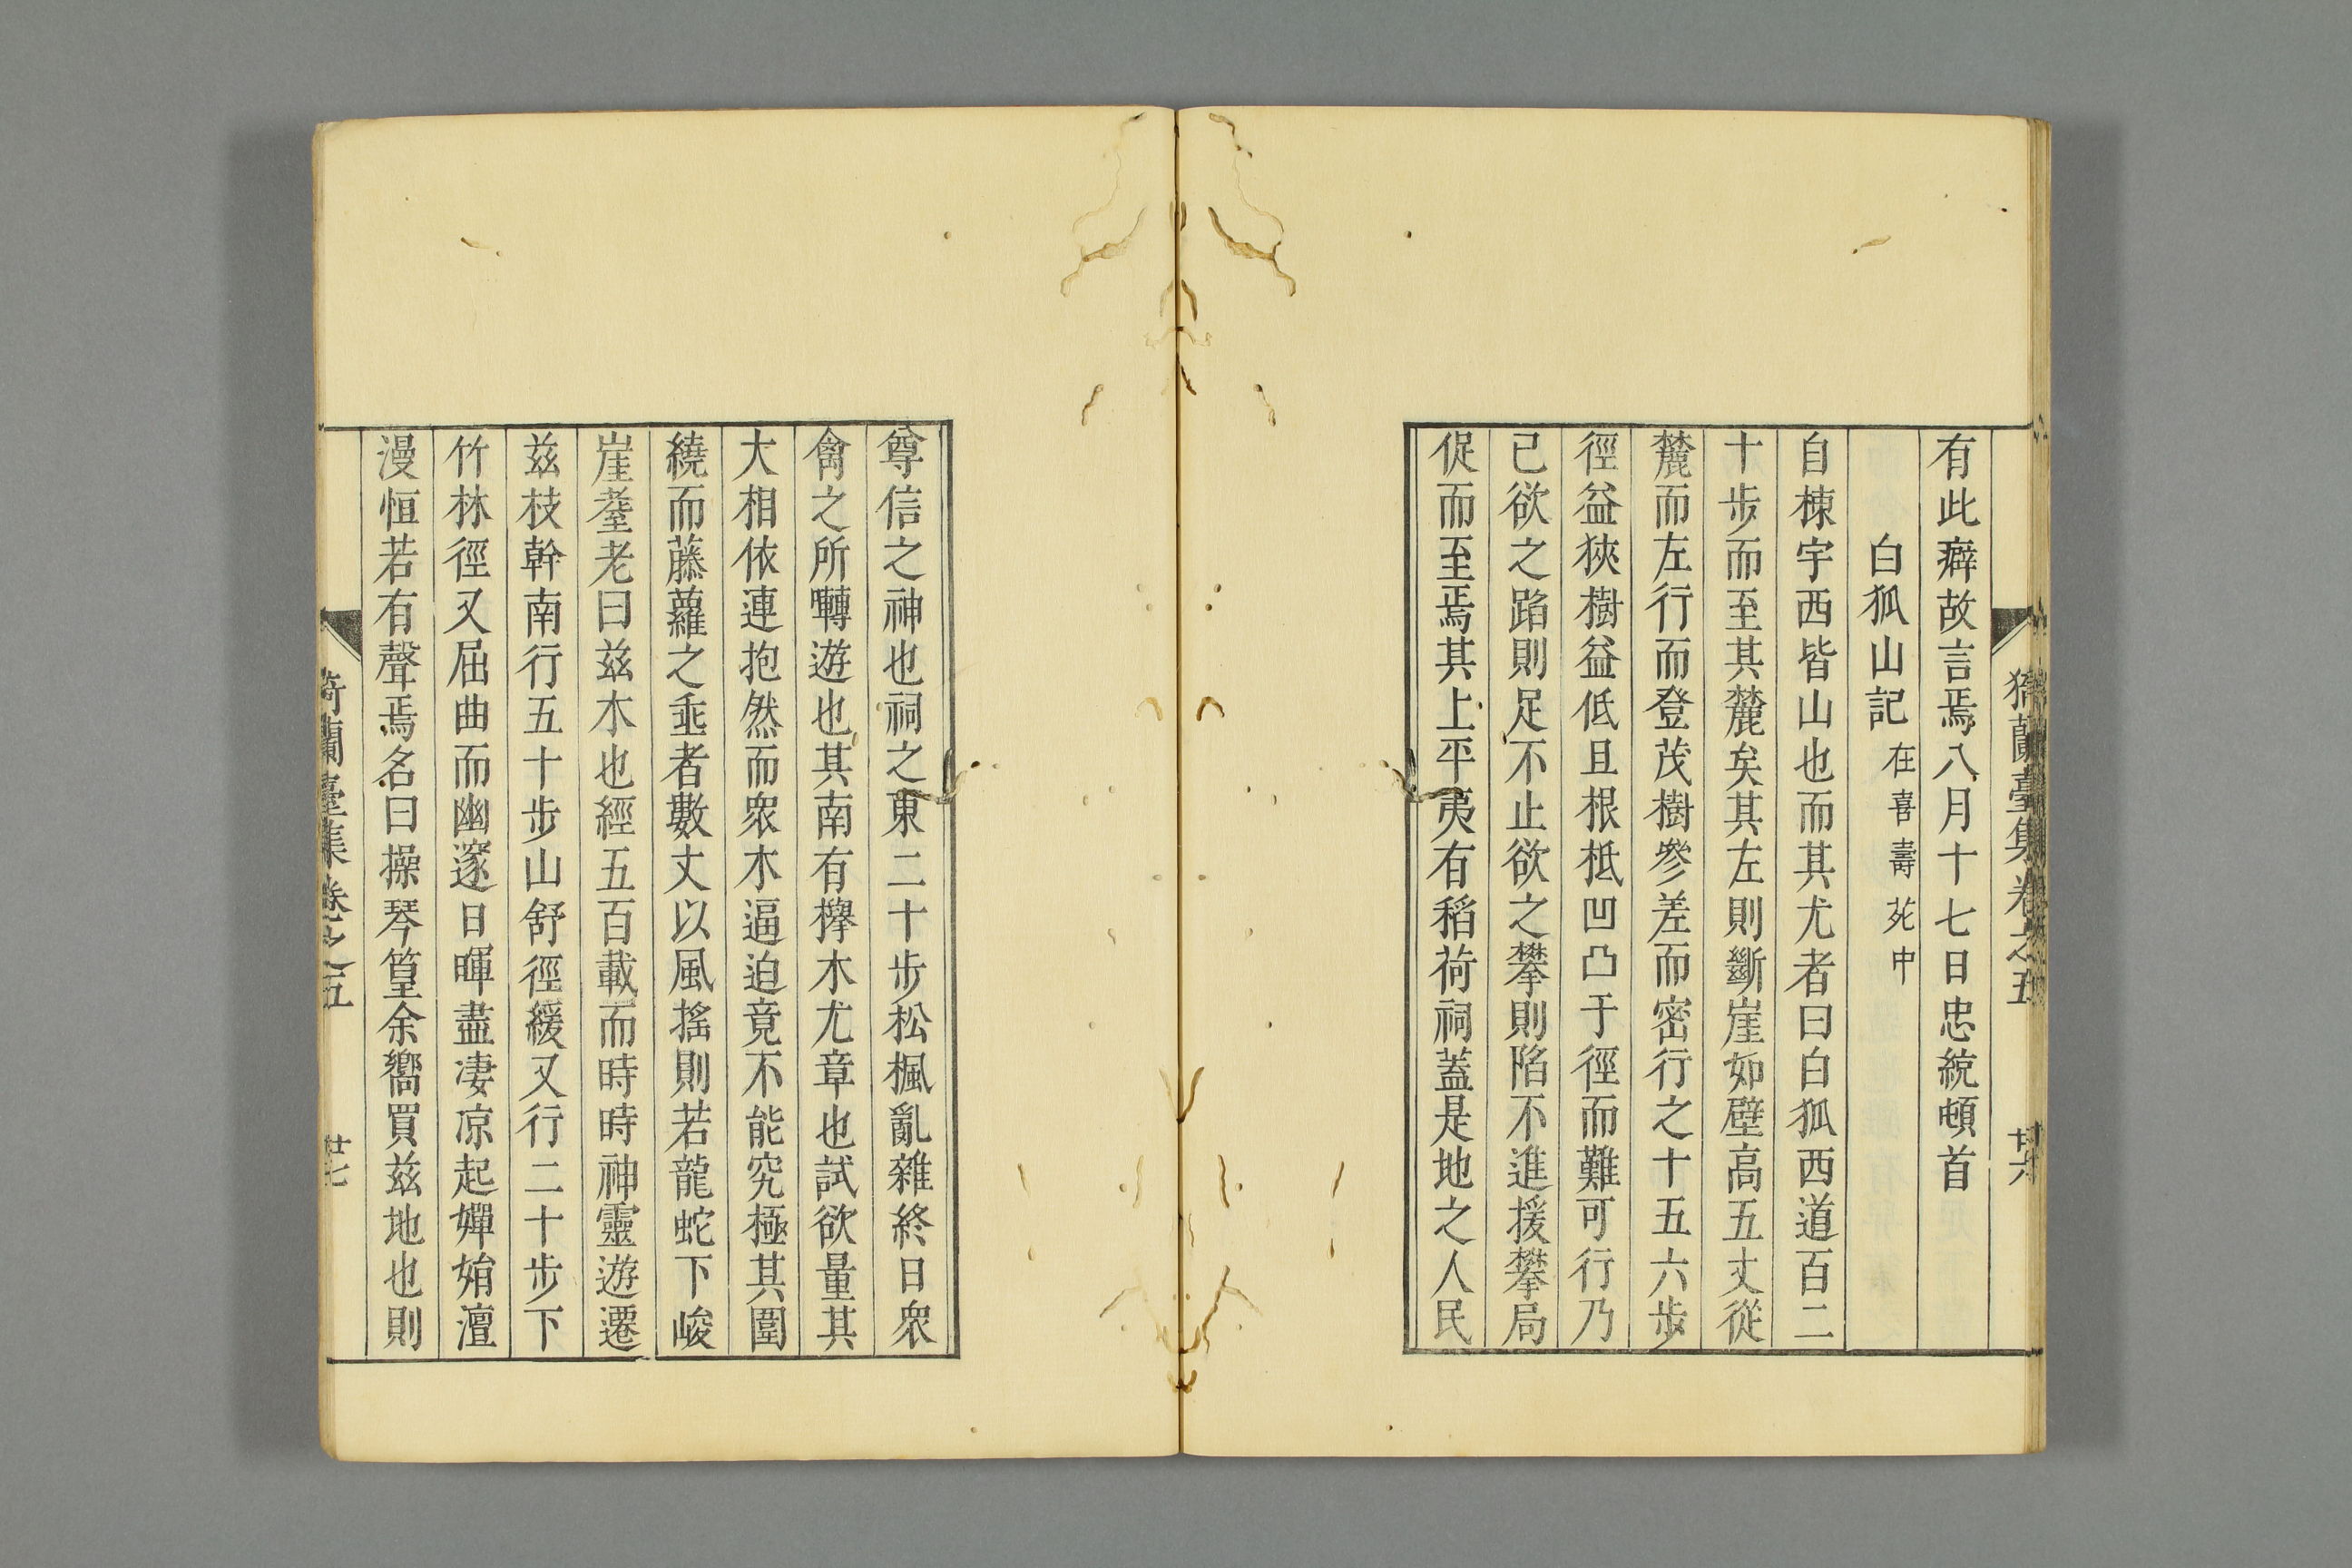 猗蘭臺集卷之五 廿六
有此癖故言焉八月十七日忠統頓首
白狐山記 在喜壽苑中
自棟宇西皆山也而其尤者曰白狐西道百二
十步而至其麓矣其左則斷崖如壁高五丈從
麓而左行而登茂樹參差而密行之十五六步
徑益狹樹益低且根柢凹凸于徑而難可行乃
已欲之蹈則足不止欲之攀則陷不進援攀局
促而至焉其上平夷有稻荷祠蓋是地之人民
尊信之神也祠之東二十步松楓亂雜終日衆
禽之所囀遊也其南有櫸木尤章也試欲量其
大相依連抱然而衆木逼迫竟不能究極其圍
繞而藤蘿之垂者數丈以風搖則若龍蛇下峻
崖耋老曰兹木也經五百載而時時神靈遊遷
兹枝幹南行五十步山舒徑緩又行二十步下
竹林徑又屈曲而幽邃日暉盡凄凉起嬋娟澶
漫恒若有聲焉名曰操琴篁余嚮買兹地也則
猗蘭臺集卷之五 廿七